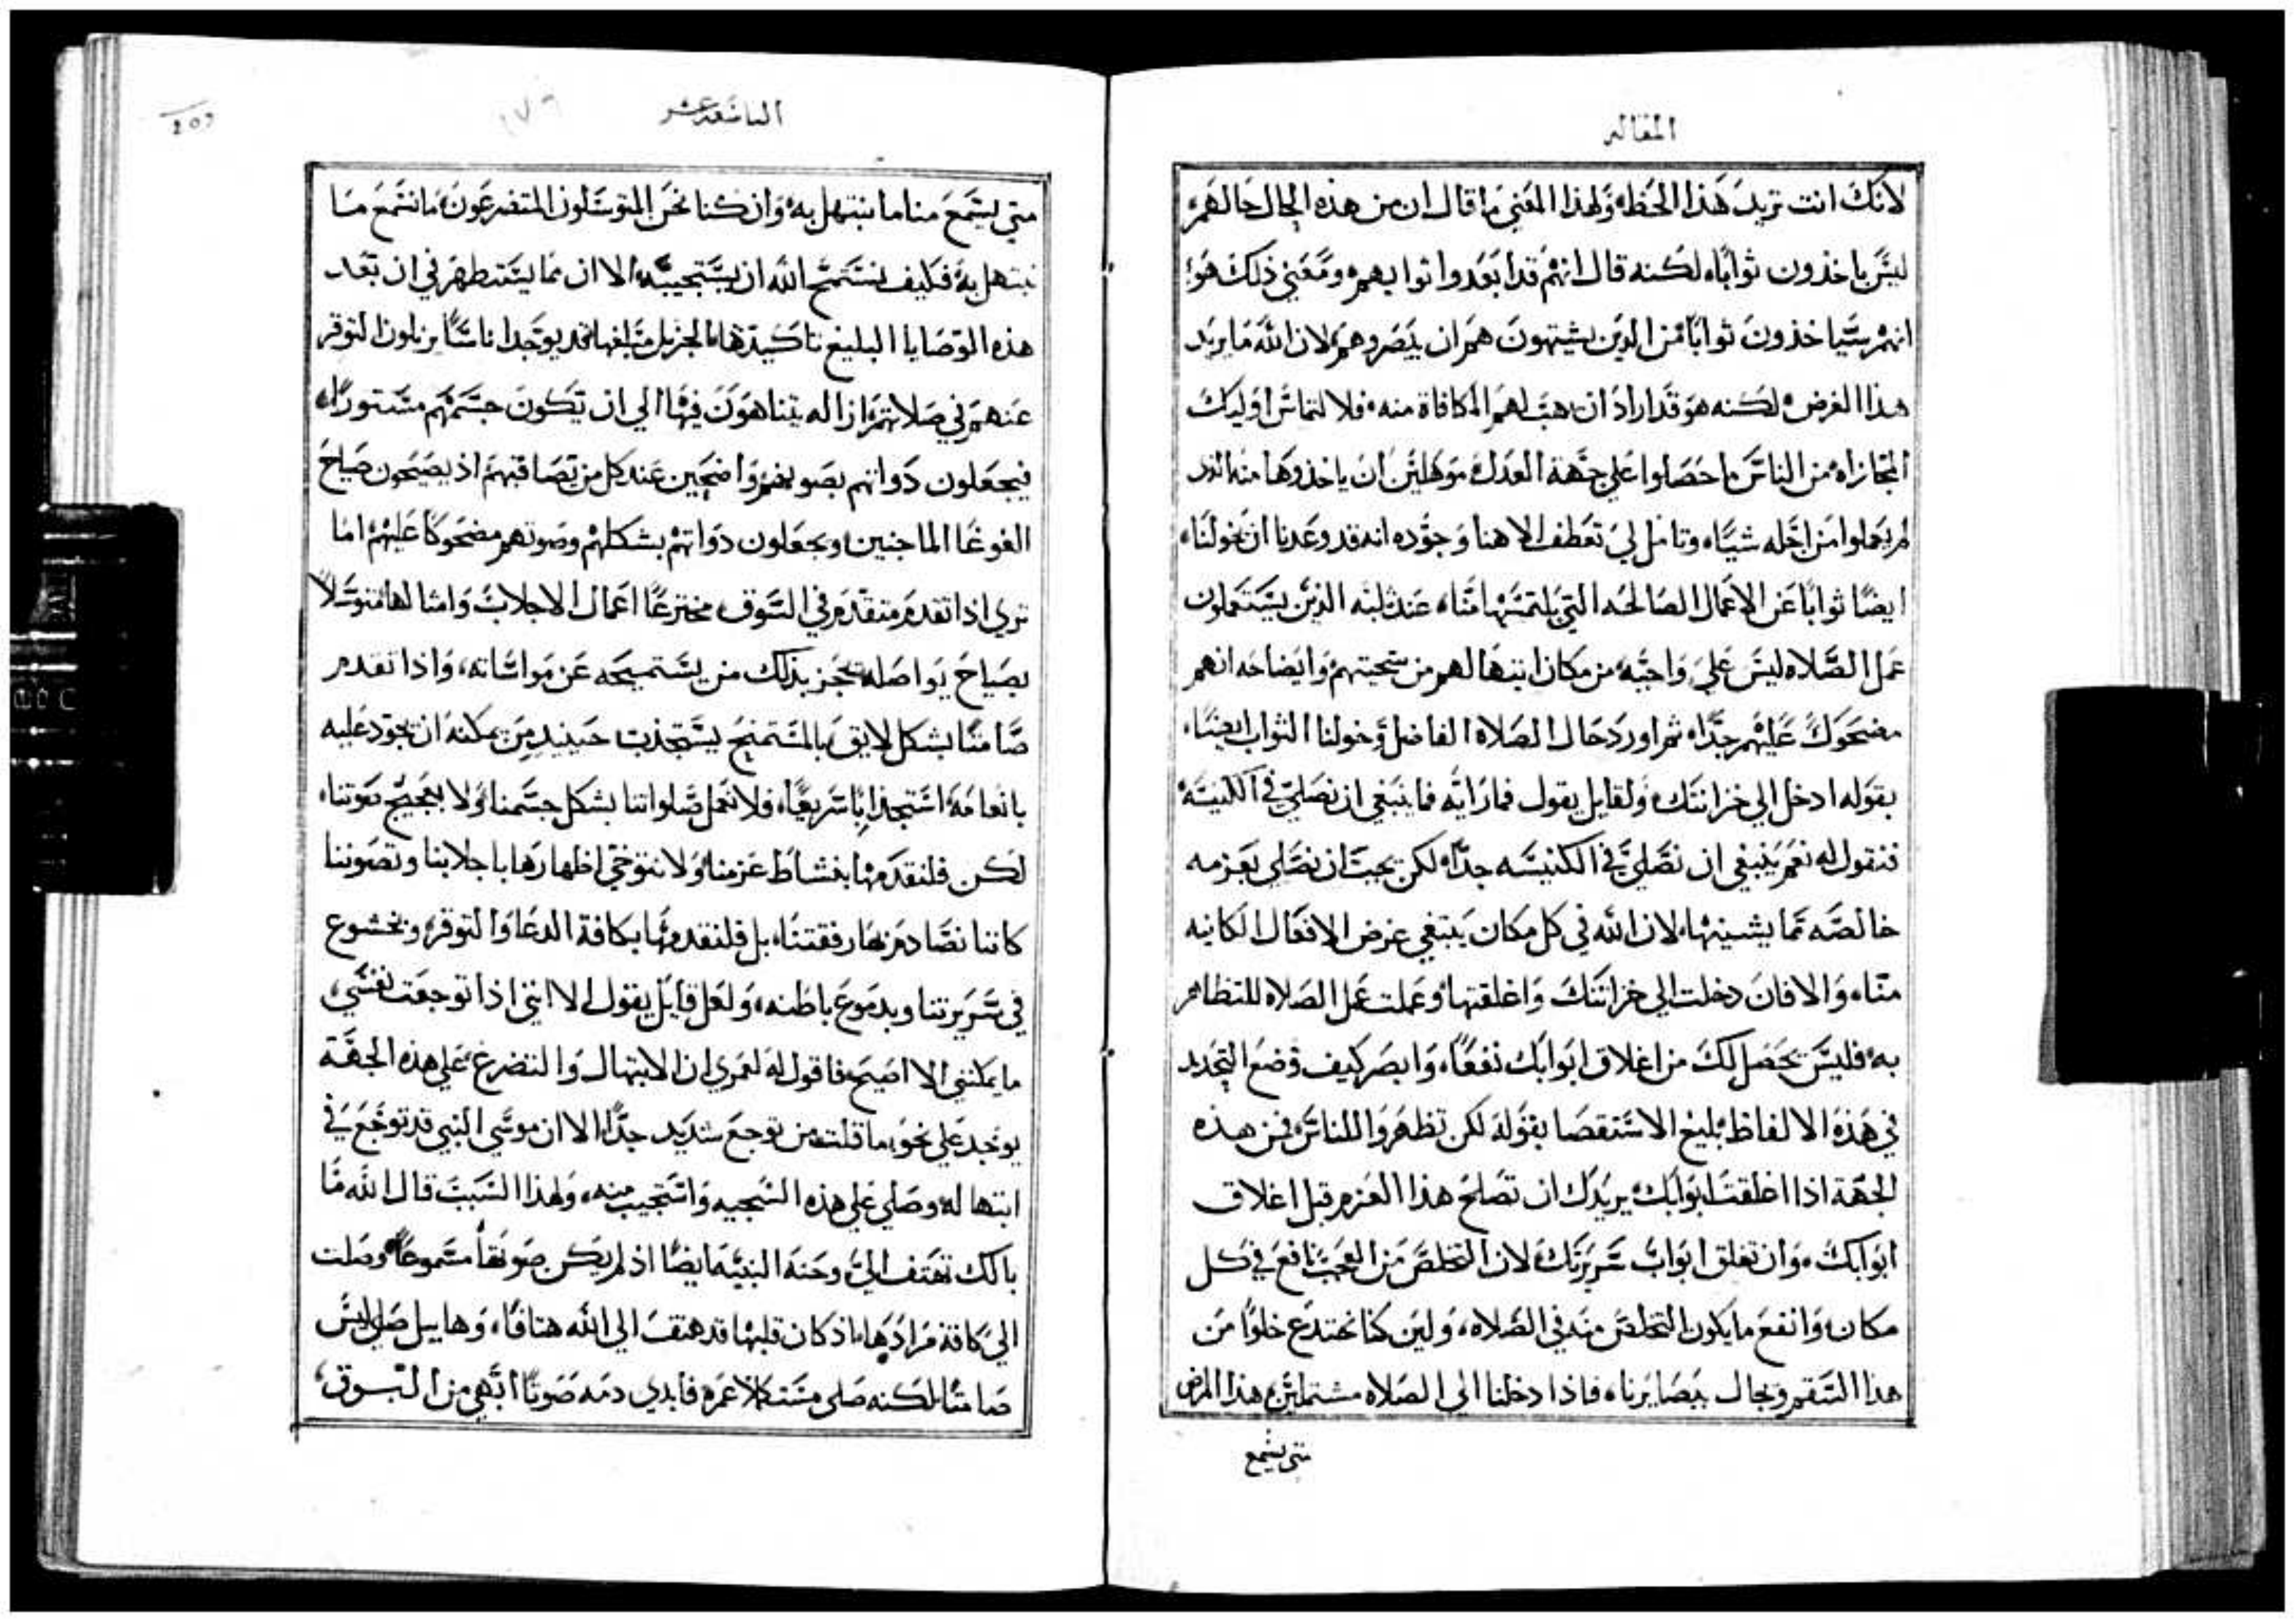 المقاله
لانك انت تريد هذا الحظ، ولهذا المعني ما قال ان من هذه الحال حالهم
ليس ياخذون ثوابًا، لكنه قال انهم قد ابعدوا ثوابهم، ومعني ذلك هو
انهم سياخذون ثوابًا من الذين يشتهون هم ان يبصروهم، لان الله ما يريد
هذا الغرض، لكنه هو قد اراد ان يهب لهم المكافاة منه، فلالتماس اوليك
المجازاه من الناس ما حصلوا علي جهة العدل موهلين ان ياخذوها منه اذ
لم يعملوا من اجله شيًا، وتامل لي تعطف الاهنا وجوده انه قد وعدنا ان يخولنا،
ايضًا ثوابًا عن الاعمال الصالحه التي يلتمسها منا، عند ثلبه الذين يستعملون
عمل الصلاه ليس علي واجبه من مكان ابتهالهم من سجيتهم وايضاحه انهم
مضحوك عليهم جدًا، ثم اورد حال الصلاة الفاضل وخولنا الثواب ايضًا،
بقوله ادخل الي خزانتك، ولقايل يقول فما رايه فما ينبغي ان نصلي في الكنيسة
فنقول له نعم ينبغي ان نصلي في الكنيسه جدًا، لكن يجب ان نصلي بعزمه
خالصه مما يشينها، لان الله في كل مكان يبتغي غرض الافعال الكاينه
منا، والا فان دخلت الي خزانتك واغلقتها وعملت عمل الصلاه للتظاهر
به، فليس يحصل لك من اغلاق ابوابك نفعًا، وابصر كيف وضع التحديد
في هذه الالفاظ بليغ الاستقصا بقوله لكن تظهروا للناس، فمن هذه
الجهة اذا اغلقت ابوابك، يريدك ان تصلح هذا العزم قبل اغلاق
ابوابك، وان تغلق ابواب سريرتك لان التخلص من العجب نافع في كل
مكان، وانفع ما يكون التخلص منه في الصلاه، ولين كنا نختدع خلوًا من
هذا السقم ونجال ببصايرنا، فاذا دخلنا الي الصلاه مشتملين هذا المرض
متي يسمع
التاسعة عشر
متي يستمع منا ما نبتهل به، وان كنا نحن المتوسلون المتضرعون، ما نسمع ما
نبتهل به فكيف نستمنح الله ان يستجيبه، الا ان مما يستعظم في ان بعد
هذه الوصايا البليغ تاكيدها، الجزيل مبلغها قد يوجد اناسًا يزيلون التوقر
عنهم في صلاتهم ازاله يتناهون فيها الي ان تكون جسمهم مستورًا،
فيجعلون ذواتهم بصوتهم واضحين عند كل من يصاقبهم اذ يصيحون صياح
الغوغا الماجنين ويجعلون ذواتهم بشكلهم وصوتهم مضحوكًا عليهم، اما
تري اذا تقدم متقدم في السوق مخترعًا اعمال الاجلاب وامثالها متوسلاً
بصياح يواصله يحجز بذلك من يستميحه عن مواساته، واذا تقدم
صامتًا بشكل لايق بالمستمنح يستجذب حينيذ من يمكنه ان يجود عليه
بانعامه استجذابًا سريعًا، فلا نعمل صلواتنا بشكل جسمنا ولا بعجيج صوتنا،
لكن فلنقدمها بنشاط عزمنا، ولا نتوخي اظهارها باجلابنا وتصوتنا
كاننا نصادم بها رفقتنا، بل فلنقدمها بكافة الدعا والتوقر وبخشوع
في سريرتنا وبدموع باطنه، ولعل قايل يقول الا انني اذا توجعت نفسي،
ما يمكنني الا اصيح، فاقول له لعمري ان الابتهال والتضرع علي هذه الجهة
يوجد علي نحو ما قلت، من توجع شديد جدًا الا ان موسي النبي قد توجع في
ابتهاله وصلي علي هذه السجيه واستجيب منه، ولهذا السبب قال الله ما
بالك تهتف الي، وحنه النبيه ايضًا اذ لم يكن صوتها مسموعًا وصلت
الي كافة مرادها، اذ كان قلبها قد هتف الي الله هتافًا، وهابيل صلي ليس
صامتًا لكنه صلي مستكملاً عمره فابدي دمه صوتًا ابهي من البوق،